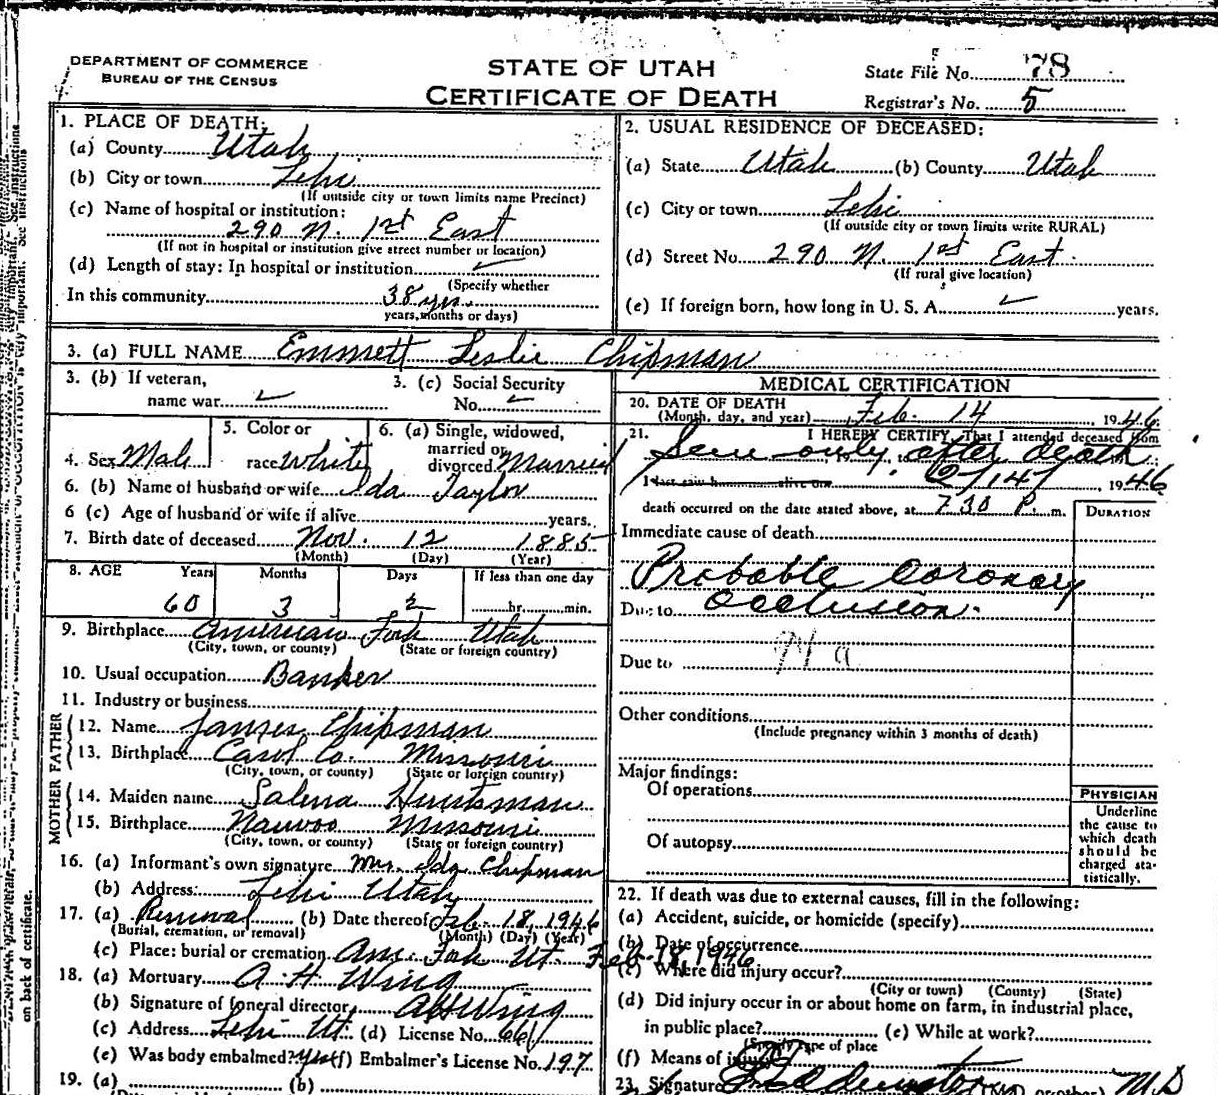 DEPARTMENT OF COMMERCE
BUREAU OF THE CENSUS
STATE OF UTAH
CERTIFICATE OF DEATH
State File No. 78
Registrar's No. 5
1. PLACE OF DEATH:
(a) County Utah
(b) City or town Lehi
(If outside city or town limits name Precinct)
(c) Name of hospital or institution:
290 N. 1st East
(If not in hospital or institution give street number or location)
(d) Length of stay: In hospital or institution ✓
(Specify whether
In this community 38 yrs.
years, months or days)
2. USUAL RESIDENCE OF DECEASED:
(a) State Utah (b) County Utah
(c) City or town Lehi
(If outside city or town limits write RURAL)
(d) Street No. 290 N. 1st East.
(If rural give location)
(e) If foreign born, how long in U. S. A. ✓ years.
3. (a) FULL NAME Emmett Leslie Chipman
3. (b) If veteran,
name war ✓
3. (c) Social Security
No. ✓
4. Sex Male
5. Color or
race White
6. (a) Single, widowed,
married or
divorced Married
6. (b) Name of husband or wife Ida Taylor
6 (c) Age of husband or wife if alive years.
7. Birth date of deceased Nov. 12 1885
(Month) (Day) (Year)
8. AGE Years Months Days If less than one day
60 3 2 hr. min.
9. Birthplace American Fork Utah
(City, town, or county) (State or foreign country)
10. Usual occupation Banker
11. Industry or business
FATHER
12. Name James Chipman
13. Birthplace Carol Co. Missouri
(City, town, or county) (State or foreign country)
MOTHER
14. Maiden name Salena Huntsman
15. Birthplace Nauvoo Missouri
(City, town, or county) (State or foreign country)
16. (a) Informant's own signature Mrs. Ida Chipman
(b) Address: Lehi Utah
17. (a) Removal (b) Date thereof Feb. 18, 1946
(Burial, cremation, or removal) (Month) (Day) (Year)
(c) Place: burial or cremation Am. Fork Ut. Feb. 18, 1946
18. (a) Mortuary A. H. Wing
(b) Signature of funeral director A H Wing
(c) Address Lehi Ut. (d) License No. 661
(e) Was body embalmed? yes (f) Embalmer's License No. 197
19. (a) (b)
MEDICAL CERTIFICATION
20. DATE OF DEATH
(Month, day, and year) Feb. 14 1946.
21. I HEREBY CERTIFY, That I attended deceased from
Seen only after death
I last saw h alive on 2/14/ 1946
death occurred on the date stated above, at 7 30 P. m.
DURATION
Immediate cause of death
Probable Coronary
Due to Occlusion.
Due to 94 a
Other conditions
(Include pregnancy within 3 months of death)
Major findings:
Of operations
Of autopsy
PHYSICIAN
Underline
the cause to
which death
should be
charged sta-
tistically.
22. If death was due to external causes, fill in the following:
(a) Accident, suicide, or homicide (specify)
(b) Date of occurrence
(c) Where did injury occur?
(City or town) (County) (State)
(d) Did injury occur in or about home on farm, in industrial place,
in public place? (e) While at work?
(Specify type of place
(f) Means of injury
23. Signature (M.D. or other) M D
on back of certificate.